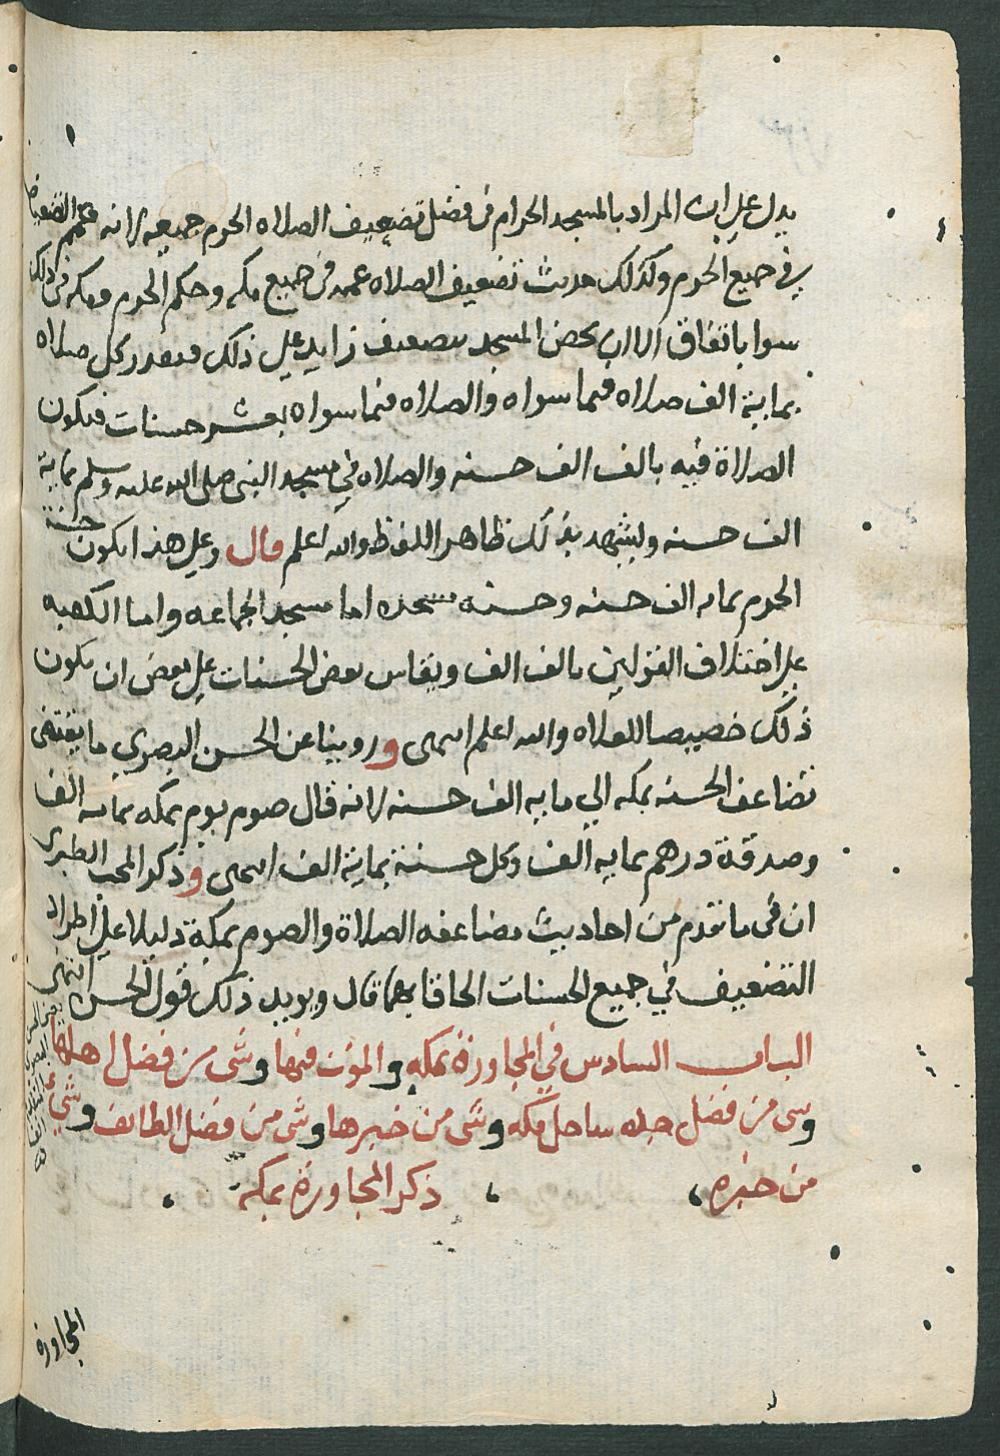 يدل علي ان المراد بالمسجد الحرام في فضل تضعيف الصلاه الحرم جميعه لانه عمم التضعيف
في جميع الحرم وكذلك حديث تضعيف الصلاه عممه في جميع مكه وحكم الحرم ومكه في ذلك
سوا باتفاق الا ان يخص المسجد بتضعيف زايد علي ذلك فيقدر كل صلاه
بماية الف صلاه فيما سواه والصلاه فيما سواه بعشر حسنات فتكون
الصلاة فيه بالف الف حسنه والصلاه في مسجد النبي صلى الله عليه وسلم بماية
الف حسنه ويشهد بذلك ظاهر اللفظ والله اعلم قال وعلي هذا تكون حسنة
الحرم بمايه الف حسنه وحسنه مسجده اما مسجد الجماعه واما الكعبه
علي اختلاف القولين بالف الف ويقاس بعض الحسنات علي بعض او يكون
ذلك خصيصا للصلاه والله اعلم انتهى وروينا عن الحسن البصري ما يقتضي
تضاعف الحسنه بمكه الي مايه الف حسنه لانه قال صوم يوم بمكه بمايه الف
وصدقة درهم بمايه الف وكل حسنة بماية الف انتهى وذكر المحب الطبري
ان في ما تقدم من احاديث مضاعفه الصلاة والصوم بمكة دليلا علي اطراد
التضعيف في جميع الحسنات الحاقا بهما قال ويويد ذلك قول الحسن انتهى
الباب السادس في المجاورة بمكه والموت فيها وشي من فضل اهلها
وشي من فضل جده ساحل مكه وشي من خبرها وشي من فضل الطائف وشي
من خبره ذكر المجاورة بمكة
المجاورة